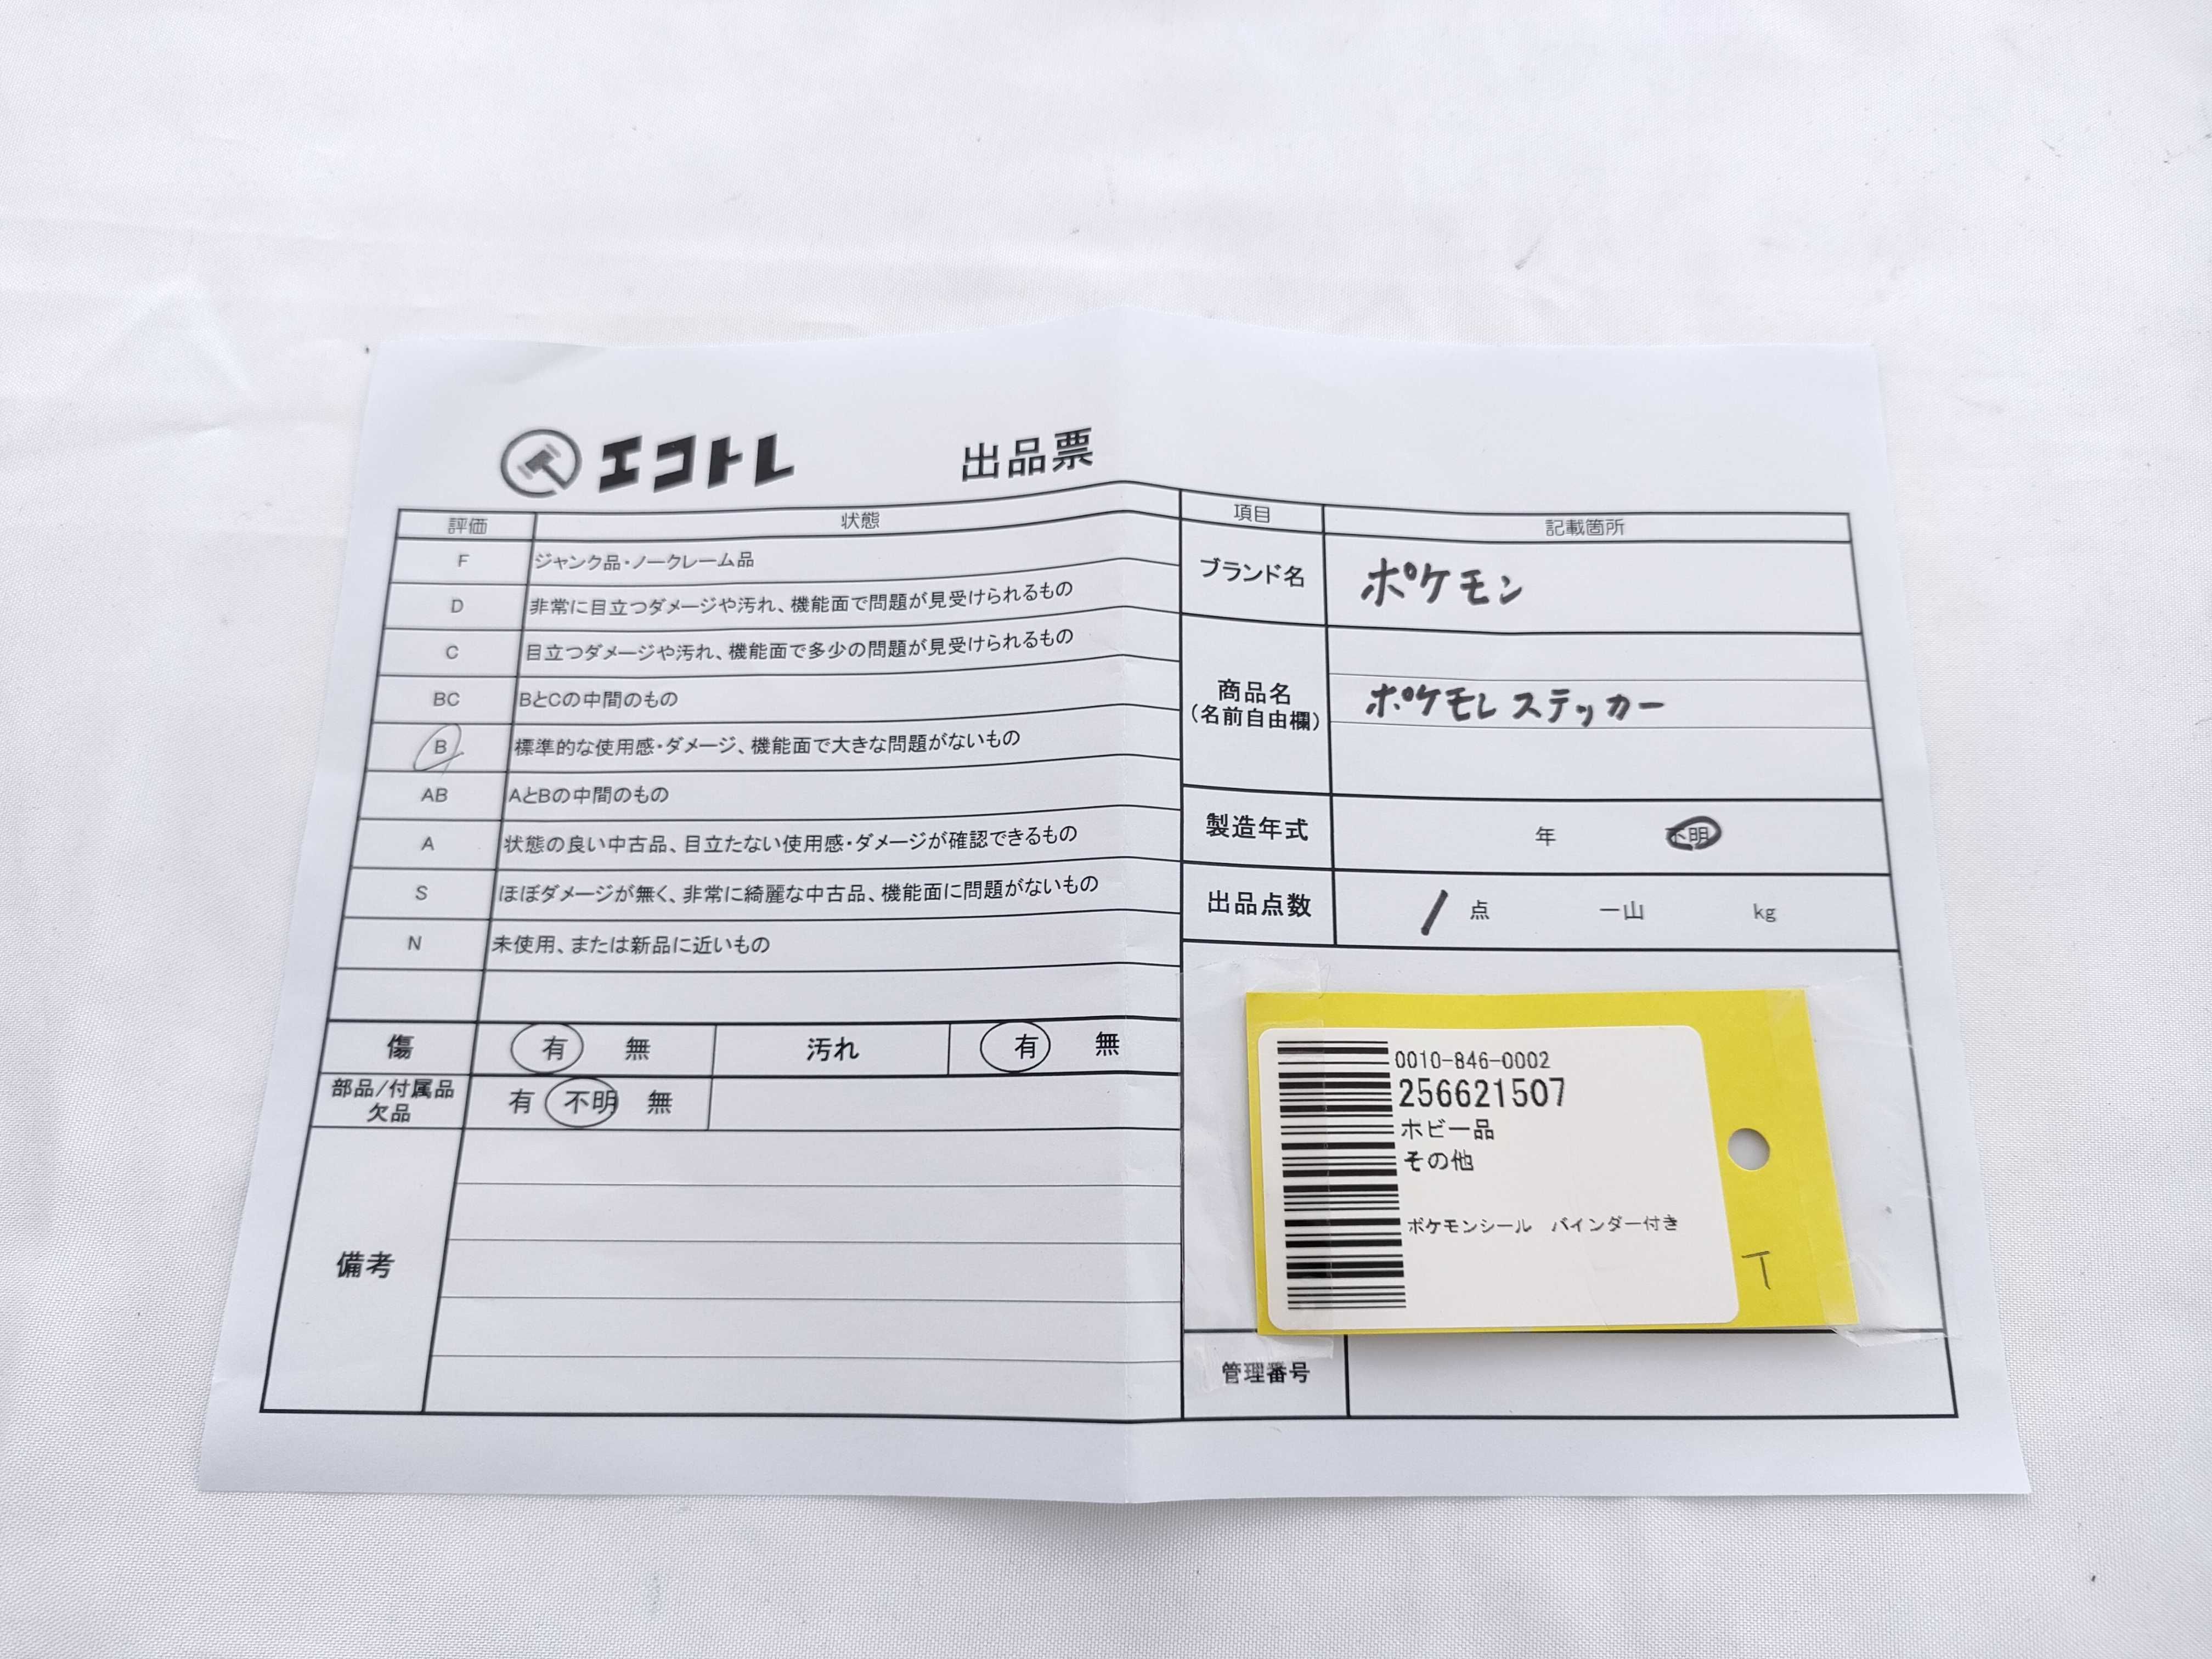 エコトレ 出品票
評価 状態
F ジャンク品・ノークレーム品
D 非常に目立つダメージや汚れ、機能面で問題が見受けられるもの
C 目立つダメージや汚れ、機能面で多少の問題が見受けられるもの
BC BとCの中間のもの
B 標準的な使用感・ダメージ、機能面で大きな問題がないもの
AB AとBの中間のもの
A 状態の良い中古品、目立たない使用感・ダメージが確認できるもの
S ほぼダメージが無く、非常に綺麗な中古品、機能面に問題がないもの
N 未使用、または新品に近いもの
傷 有 無 汚れ 有 無
部品/付属品
欠品 有 不明 無
備考
項目 記載箇所
ブランド名 ポケモン
商品名
(名前自由欄) ポケモレステッカー
製造年式 年 不明
出品点数 1 点 一山 kg
0010-846-0002
256621507
ホビー品
その他
ポケモンシール バインダー付き
T
管理番号